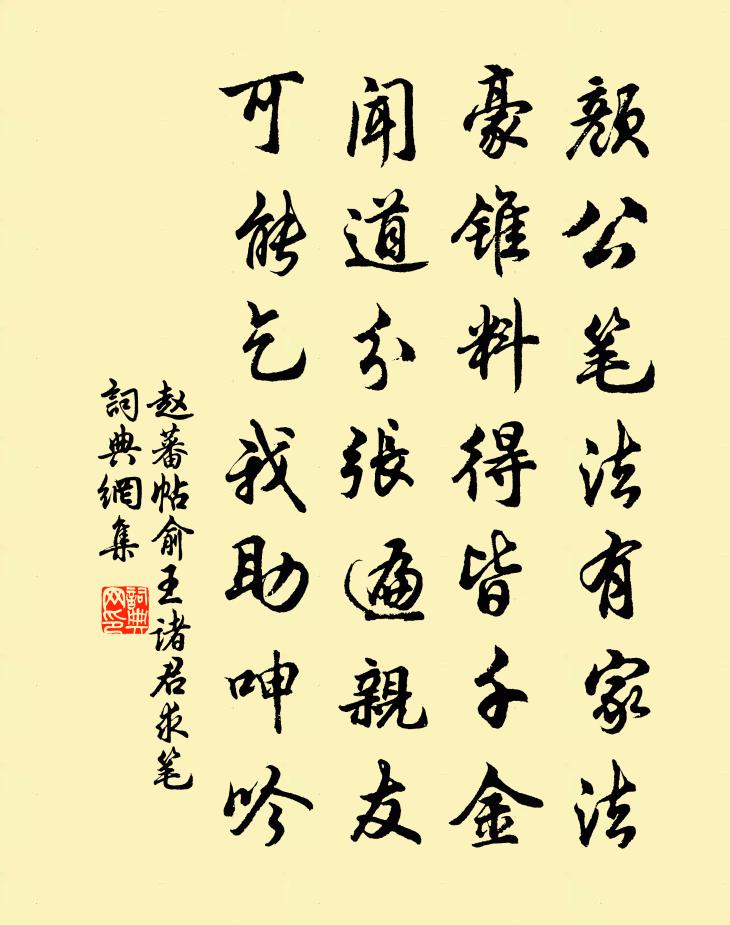 颜公笔法有家法
豪锥料得皆千金
闻道分張遍親友
可能乞我助呻吟
赵蕃帖俞王诸君求笔
詞典網集
詞典网印